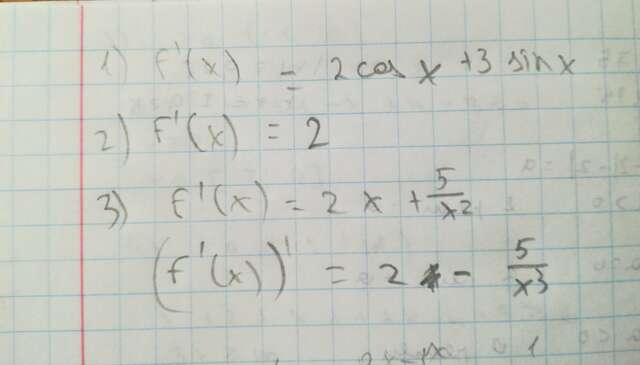 1) f'(x) = 2 cos x + 3 sin x
2) f'(x) = 2
3) f'(x) = 2 x + 5/x2
(f'(x))' = 2 - 5/x3